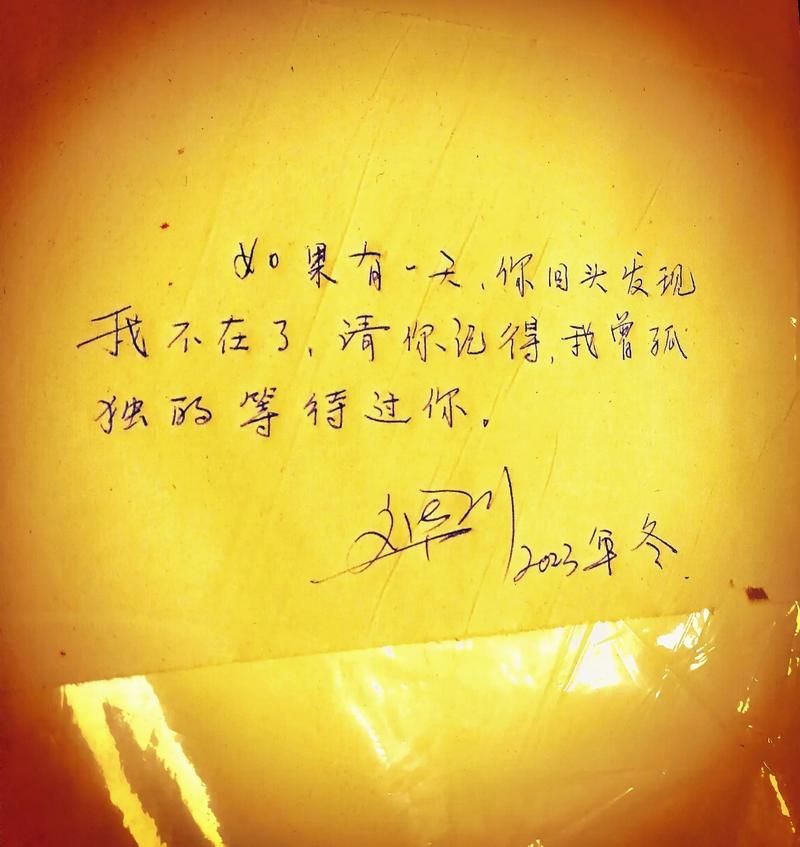 如果有一天,你回头发现
我不在了,请你记得,我曾孤
独的等待过你。
2023年冬.